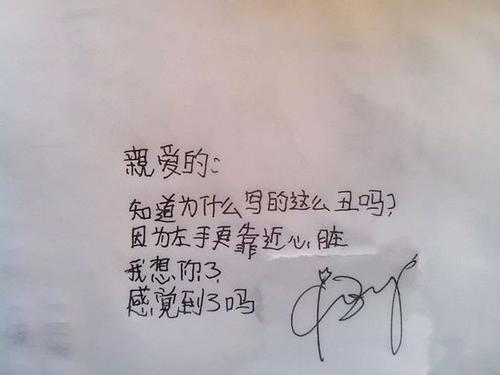 親爱的：
知道为什么写的这么丑吗？
因为左手更靠近心脏
我想你了
感觉到了吗